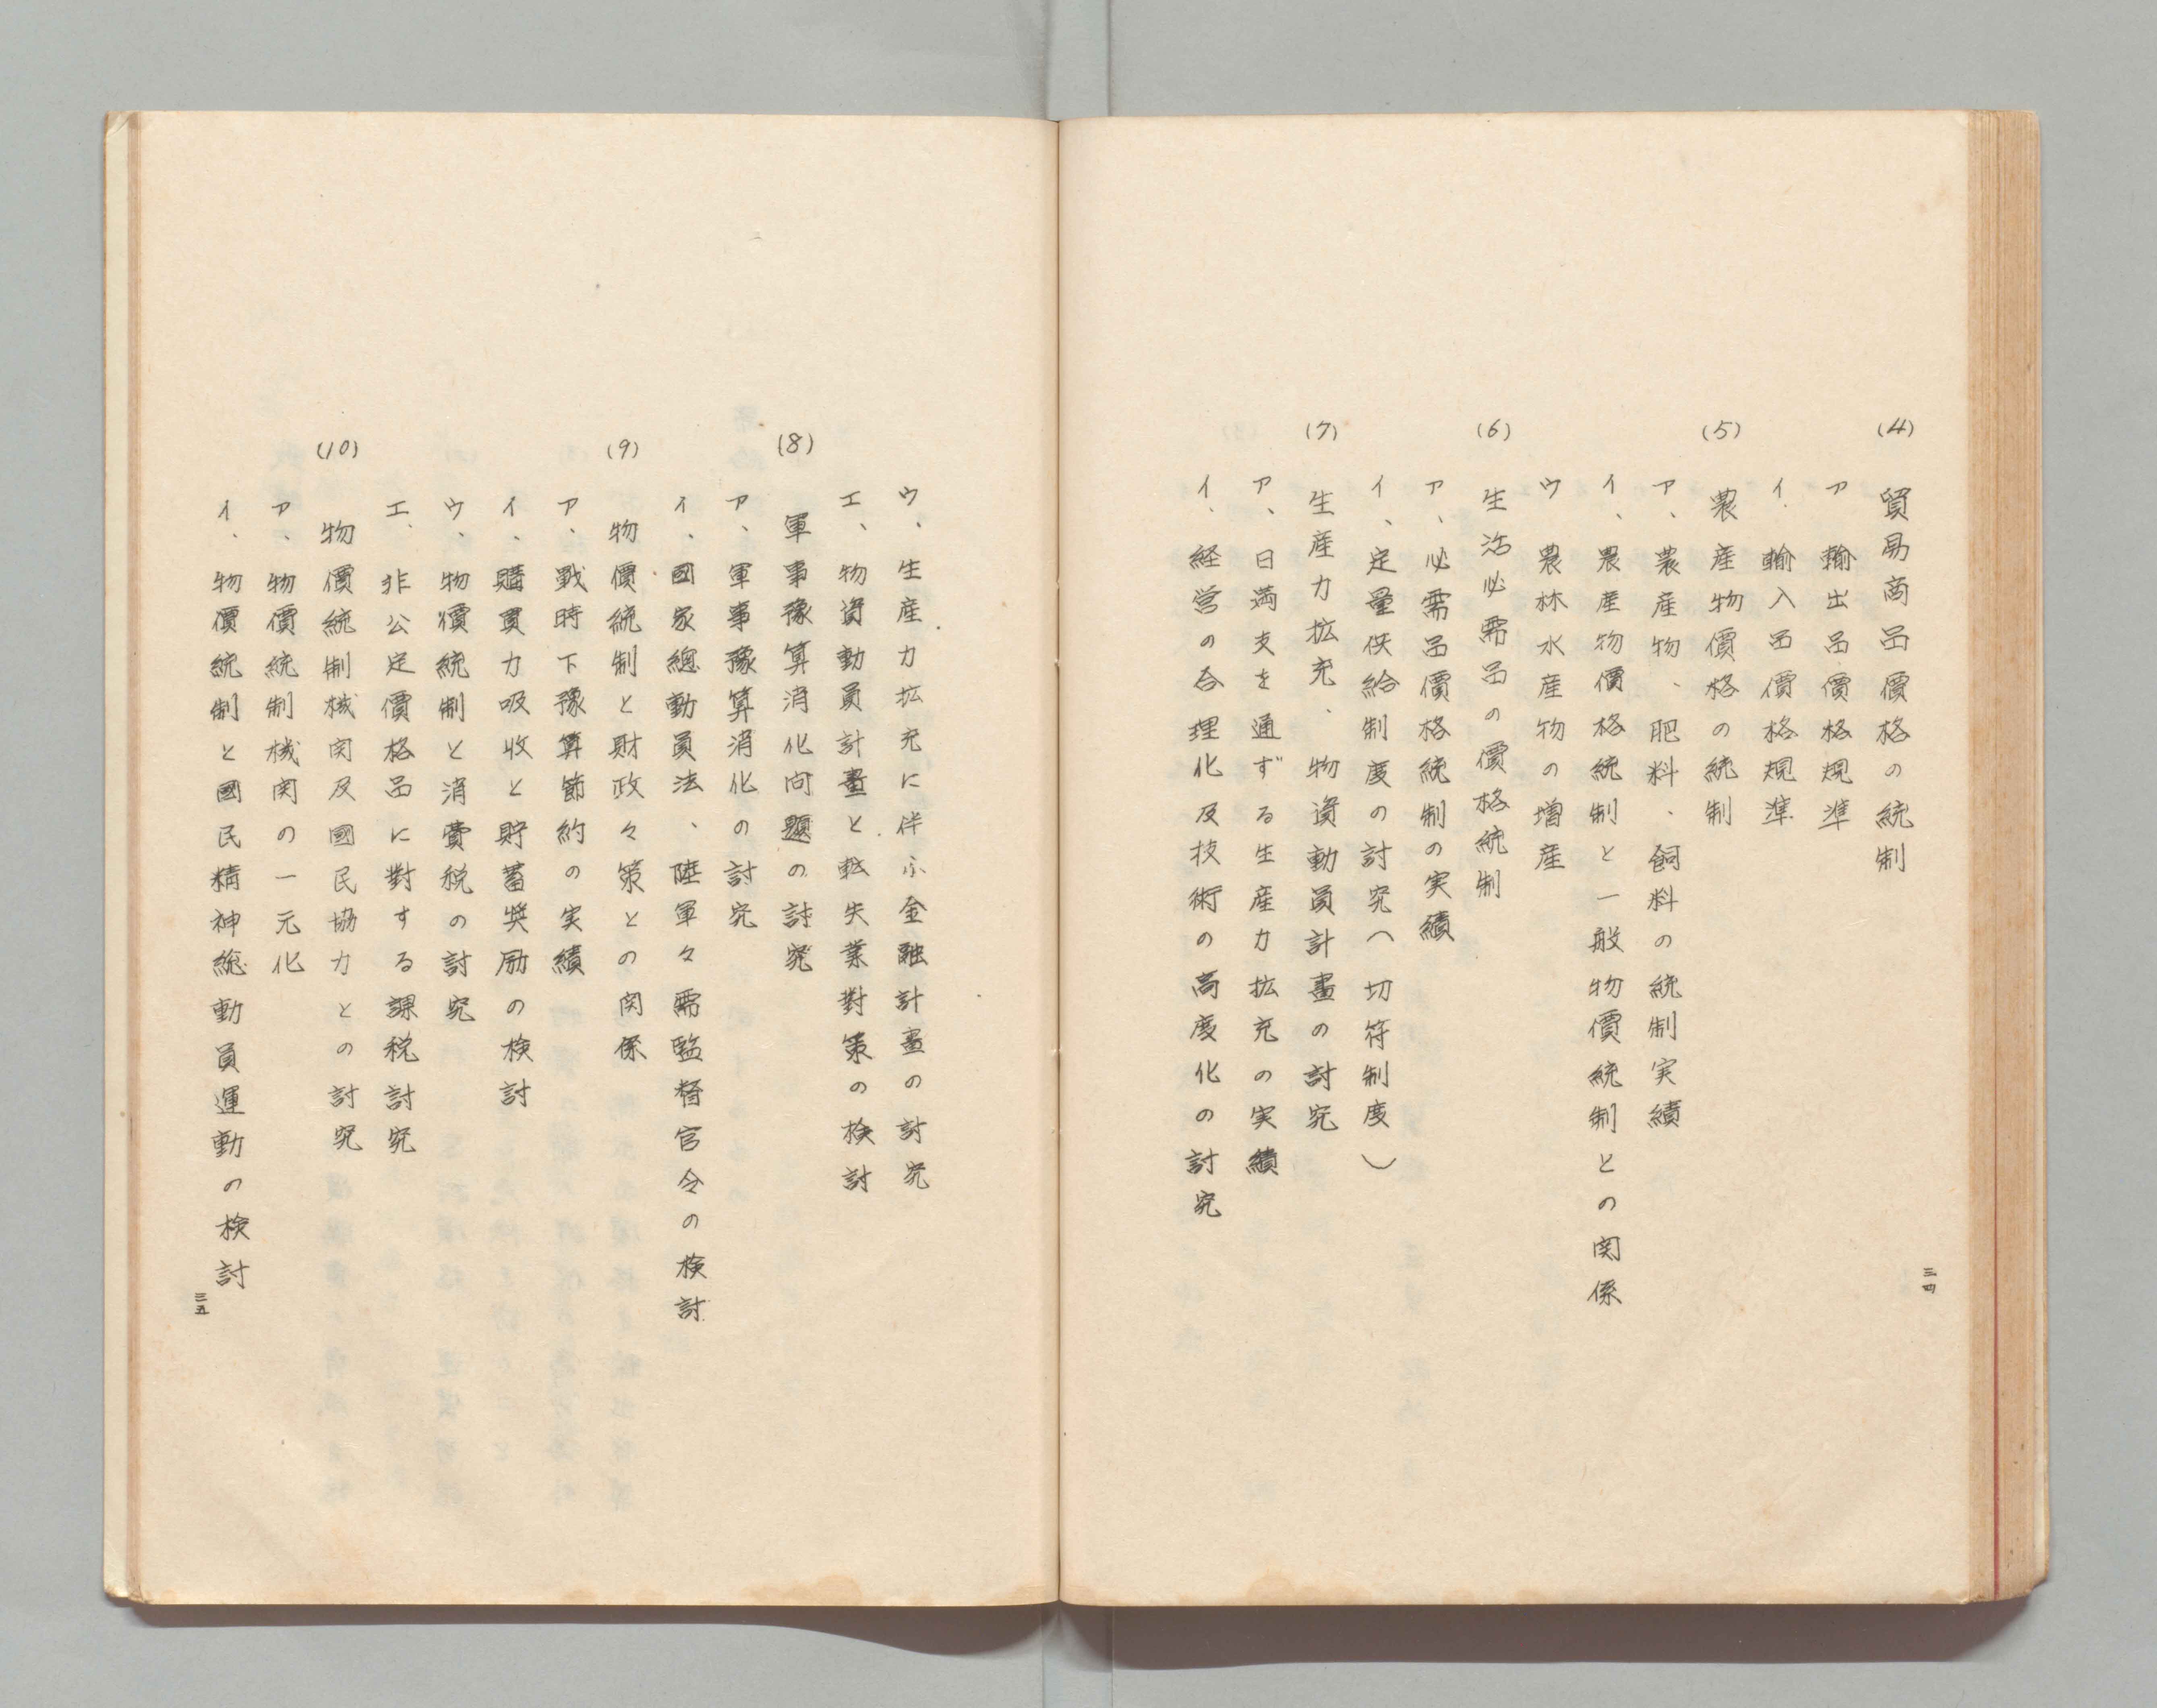 (4) 貿易商品價格の統制
ア 輸出品價格規準
イ、輸入品價格規準
(5) 農産物價格の統制
ア、農産物、肥料、飼料の統制実績
イ、農産物價格統制と一般物價統制との関係
ウ 農林水産物の増産
(6) 生活必需品の價格統制
ア、必需品價格統制の実績
イ、定量供給制度の討究（切符制度）
(7) 生産力拡充、物資動員計畫の討究
ア、日満支を通ずる生産力拡充の実績
イ、経営の合理化及技術の高度化の討究
三四
ウ、生産力拡充に伴ふ金融計畫の討究
エ、物資動員計畫と転失業對策の検討
(8) 軍事豫算消化问題の討究
ア、軍事豫算消化の討究
イ、國家總動員法、陸軍々需監督官令の検討
(9) 物價統制と財政々策との関係
ア、戰時下豫算節約の実績
イ、購買力吸收と貯蓄奬励の検討
ウ、物價統制と消費税の討究
エ、非公定價格品に對する課税討究
(10) 物價統制機関及國民協力との討究
ア、物價統制機関の一元化
イ、物價統制と國民精神総動員運動の検討
三五